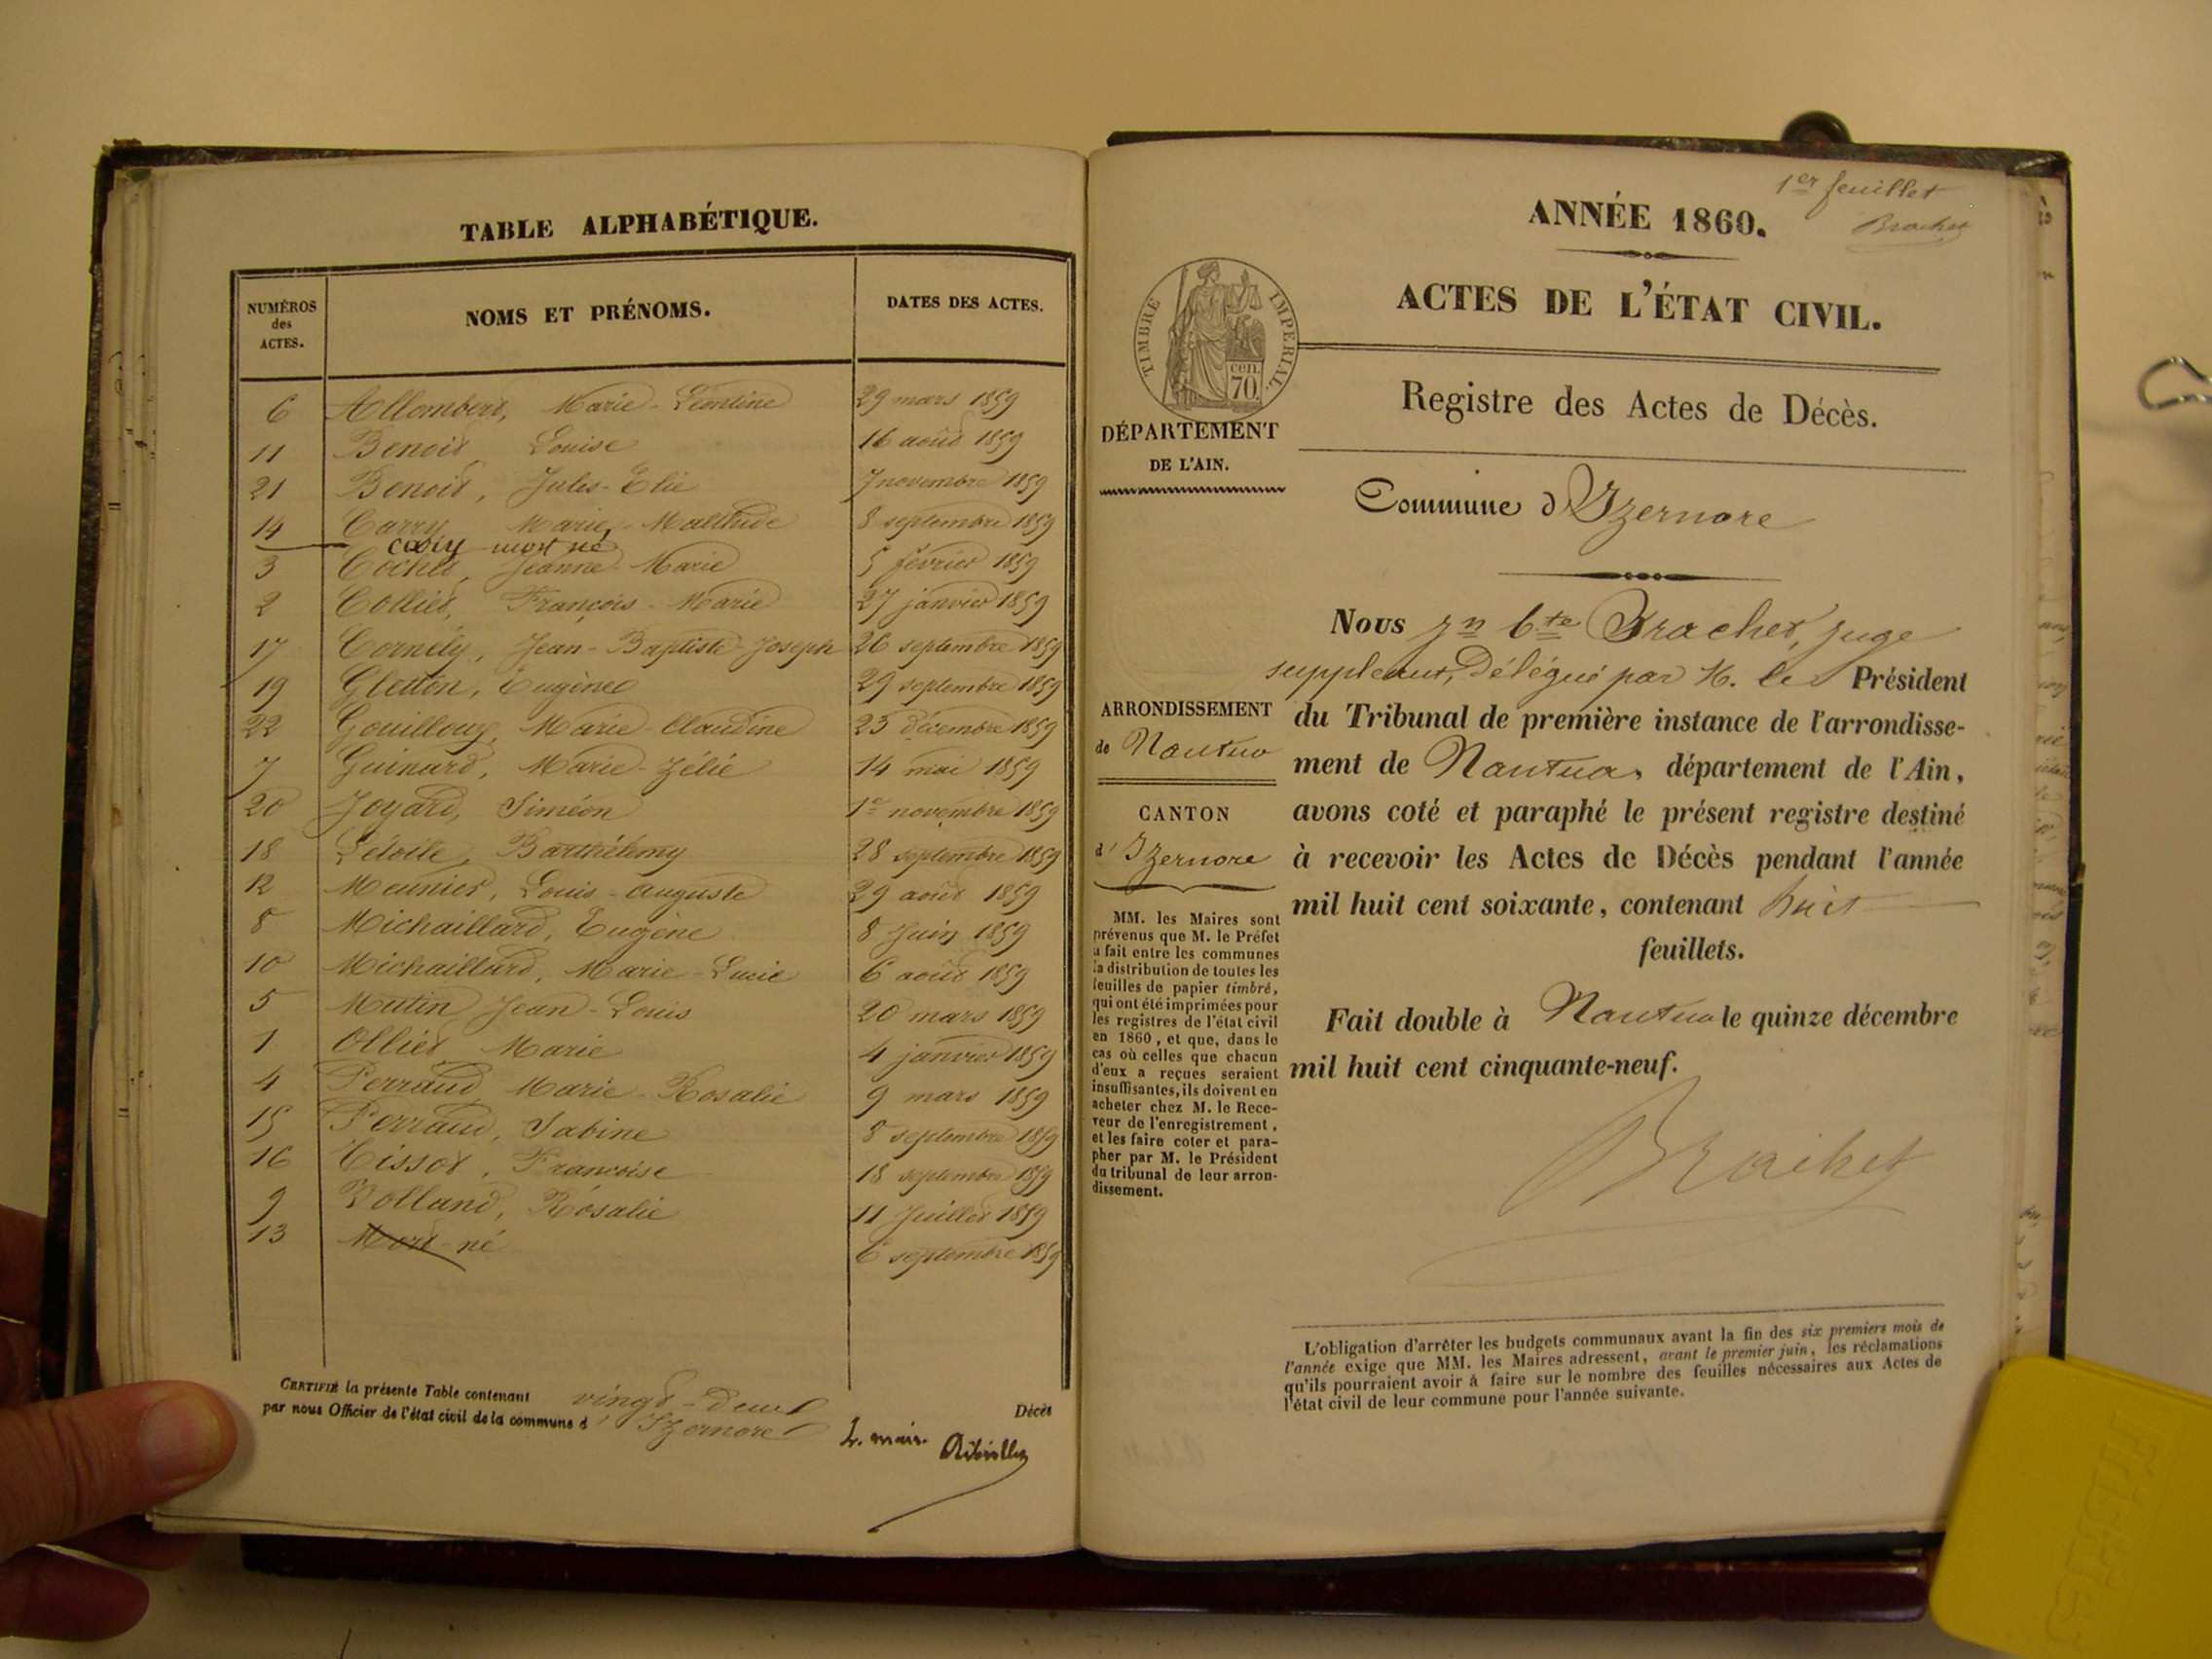 TABLE ALPHABÉTIQUE.
NUMÉROS des ACTES. NOMS ET PRÉNOMS. DATES DES ACTES.
6 Allombert, Marie-Léontine 29 mars 1859
11 Benoit, Louise 16 août 1859
21 Benoit, Jules-Elie 7 novembre 1859
14 Carry, Marie, Malthide 8 septembre 1859
mort né
3 Cochet, Jeanne-Marie 5 février 1859
2 Collet, François-Marie 27 janvier 1859
17 Cornély, Jean-Baptiste-Joseph 26 septembre 1859
19 Gletton, Eugène 29 septembre 1859
22 Gouilloux, Marie-Claudine 23 décembre 1859
7 Guinard, Marie-Zélie 14 mai 1859
20 Joyard, Siméon 1er novembre 1859
18 Létoile, Barthélemy 28 septembre 1859
12 Meunier, Louis-auguste 29 août 1859
8 Michaillard, Eugène 8 Juin 1859
10 Michaillard, Marie-Lucie 6 août 1859
5 Mutin Jean-Louis 20 mars 1859
1 Olliet Marie 4 janvier 1859
4 Perraud Marie-Rosalie 9 mars 1859
15 Perraud, Sabine 8 septembre 1859
16 Tissot, Françoise 18 septembre 1859
9 Volland, Rosalie 11 Juillet 1859
13 Mort-né 6 septembre 1859
CERTIFIÉ la présente Table contenant vingt-deux Décès
par nous Officier de l'état civil de la commune d' Izernore
L. maire
1er feuillet
Brachet
ANNÉE 1860.
ACTES DE L'ÉTAT CIVIL.
TIMBRE IMPERIAL.
cen. 70.
Registre des Actes de Décès.
DÉPARTEMENT
DE L'AIN.
Commune d'Izernore
Nous Jn Bte Brachet, juge
suppléant, Délégué par M. le Président
du Tribunal de première instance de l'arrondisse-
ment de Nantua, département de l'Ain,
avons coté et paraphé le présent registre destiné
à recevoir les Actes de Décès pendant l'année
mil huit cent soixante, contenant huit
feuillets.
Fait double à Nantua le quinze décembre
mil huit cent cinquante-neuf.
Brachet
ARRONDISSEMENT
de Nantua
CANTON
d'Izernore
MM. les Maires sont
prévenus que M. le Préfet
a fait entre les communes
la distribution de toutes les
feuilles de papier timbré,
qui ont été imprimées pour
les registres de l'état civil
en 1860, et que, dans le
cas où celles que chacun
d'eux a reçues seraient
insuffisantes, ils doivent en
acheter chez M. le Rece-
veur de l'enregistrement,
et les faire coter et para-
pher par M. le Président
du tribunal de leur arron-
dissement.
L'obligation d'arrêter les budgets communaux avant la fin des six premiers mois de
l'année exige que MM. les Maires adressent, avant le premier juin, les réclamations
qu'ils pourraient avoir à faire sur le nombre des feuilles nécessaires aux Actes de
l'état civil de leur commune pour l'année suivante.